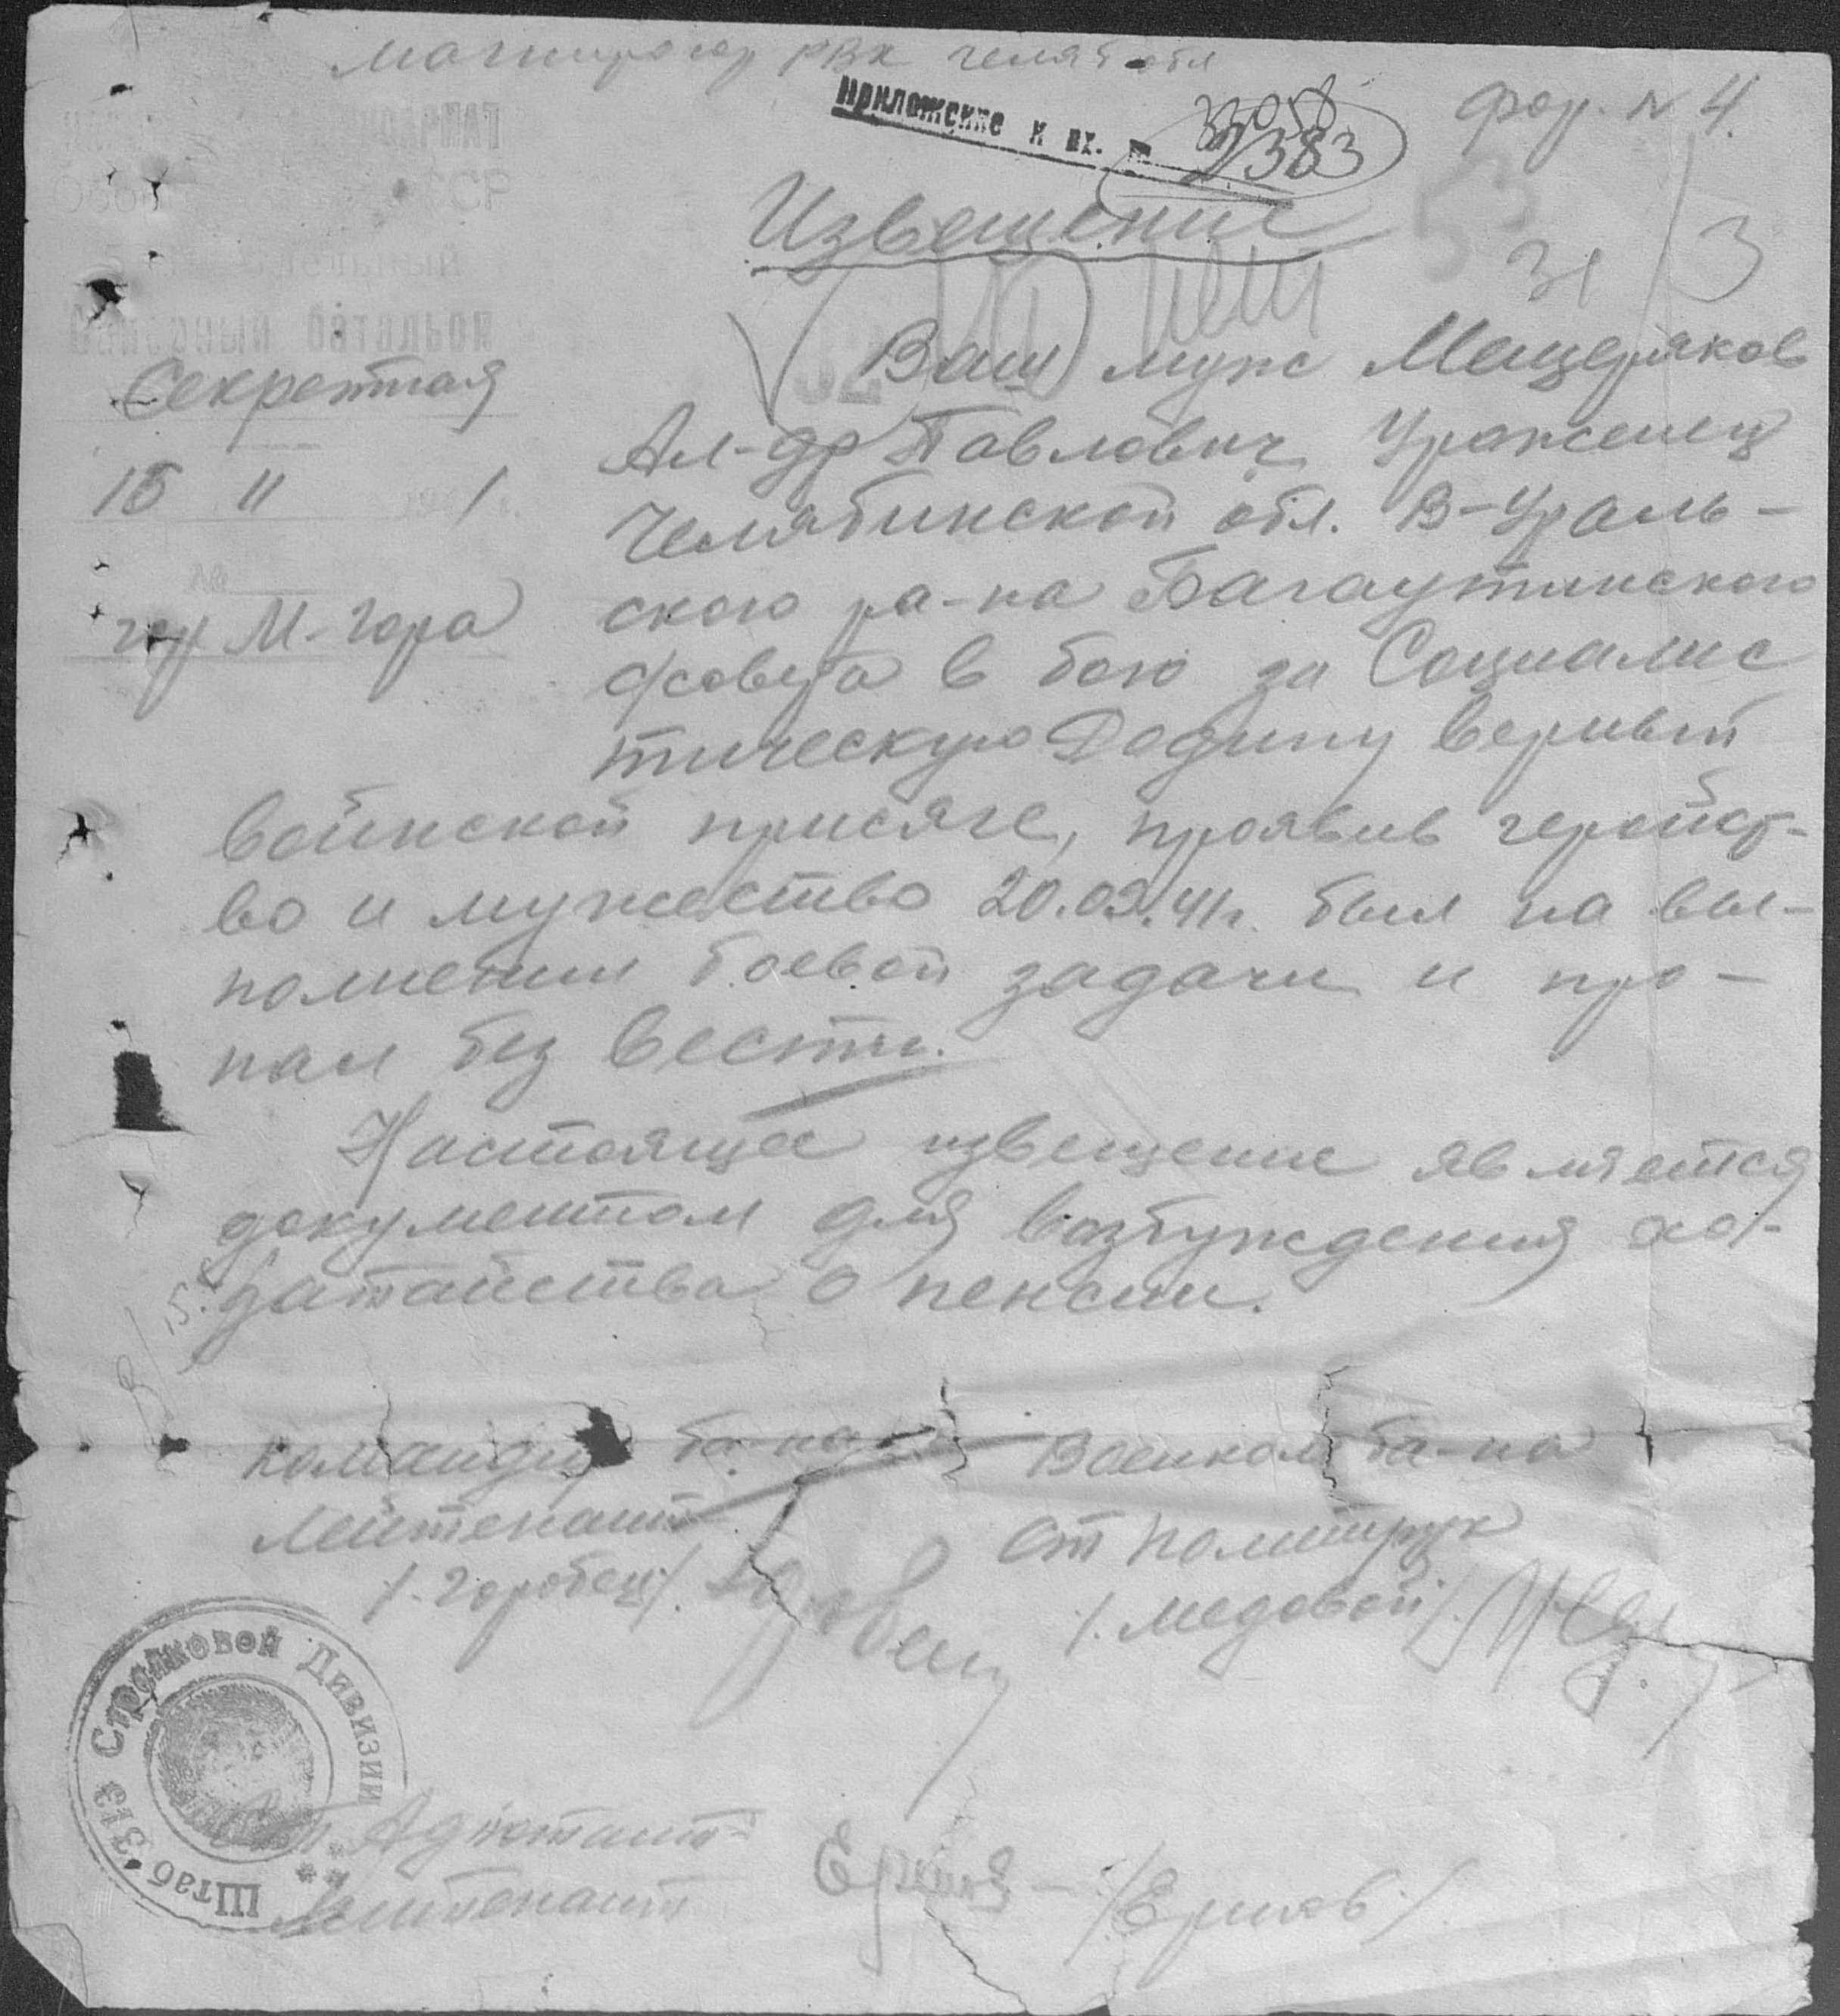 Магнитогор РВК Челяб обл
Приложение к вх. № 2383
3308
фор. № 4
Извещение
31/3
Секретная
15 11 1
гор М-Гора
Ваш муж Мещеряков
Ал-др Павлович Уроженец
Челябинской обл. В-Ураль-
ского ра-на Багаутинского
с/совета в бою за Социалис
тическую Родину верный
воинской присяге, проявив геройст-
во и мужество 20.09.41г. был на вы-
полнении боевой задачи и про-
пал без вести.
Настоящее извещение является
документом для возбуждения хо-
датайства о пенсии.
Командир ба-на
Лейтенант
/. Горобец/.
Военком ба-на
ст политрук
/. Медовой/
Штаб 313 Стрелковой Дивизии
Ст. Адютант-
Лейтенант
/Ершов/